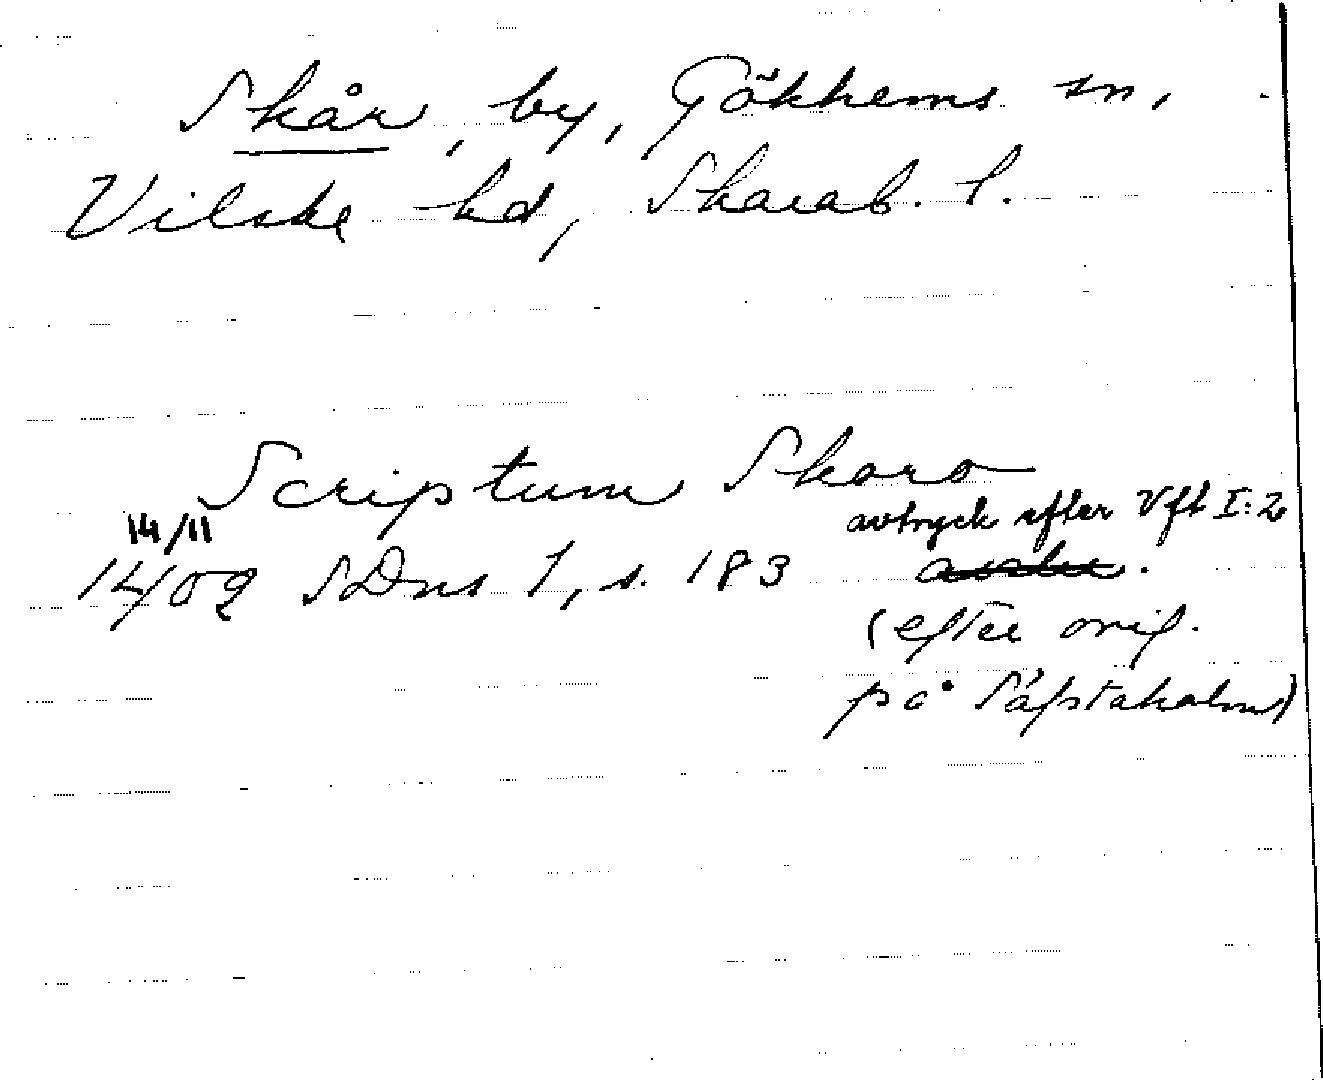 Skår, by, Gökhems sn,
Vilske hd, Skarab. l.
Scriptum Skoro
14/11
1409 SDns 1, s. 183
avtryck efter Vft I:2
(efter orig.
på Säfstaholm)